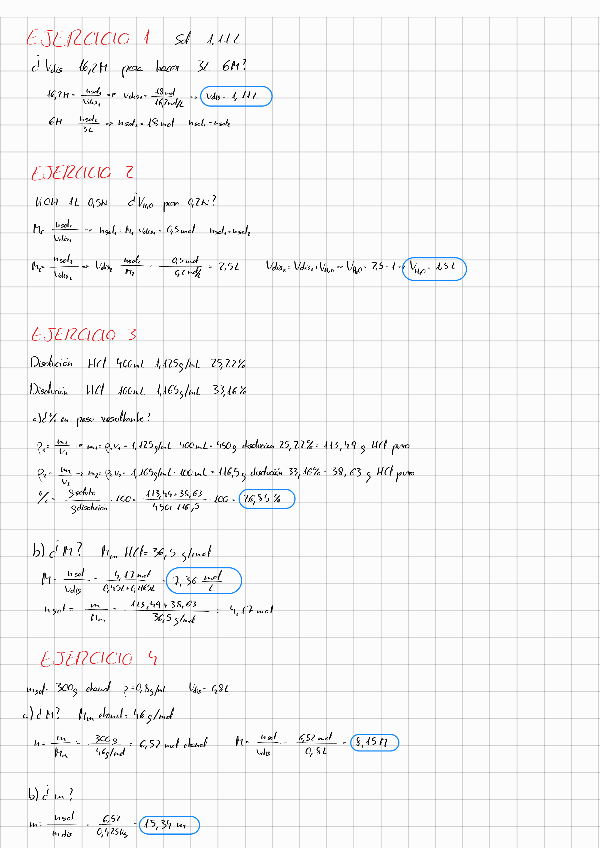 EJERCICIO 1 Sol 1,11L
¿Vdis 16,2M para hacer 3L 6M?
16,2M = nsol₁/Vdis₁ → Vdis₁ = 18mol/16,2mol/L → Vdis = 1,11L
6M nsol₂/3L → nsol₂ = 18mol nsol₁ = nsol₂
EJERCICIO 2
LiOH 1L 0,5N ¿VH₂O para 0,2N?
M₁ = nsol₁/Vdis₁ → nsol₁ = M₁ · Vdis₁ = 0,5mol nsol₁ = nsol₂
M₂ = nsol₂/Vdis₂ → Vdis₂ = nsol₂/M₂ = 0,5mol/0,2mol/L = 2,5L Vdis₂ = Vdis₁ + VH₂O → VH₂O = 2,5 - 1 → VH₂O = 1,5L
EJERCICIO 3
Disolución HCl 400mL 1,125g/mL 25,22%
Disolución HCl 100mL 1,165g/mL 33,16%
a) ¿% en peso resultante?
ρ₁ = m₁/V₁ → m₁ = ρ₁V₁ = 1,125g/mL · 400mL = 450g disolución 25,22% = 113,49 g HCl puro
m₂ = ρ₂V₂ = 1,165g/mL · 100mL = 116,5g disolución 33,16% = 38,63 g HCl puro
% = g soluto/g disolucion · 100 = 113,49+38,63/450+116,5 · 100 = 26,85%
b) ¿M? Mm HCl = 36,5 g/mol
M = nsol/Vdis = 4,17mol/ = 7,36 mol/L
nsol = m/Mm = 113,49+38,63/36,5g/mol = 4,17mol
EJERCICIO 4
msol = 300g etanol ρ=0,8g/mL Vdis = 0,8L
a) ¿M? Mm etanol = 46g/mol
n = m/Mm = 300g/46g/mol = 6,52 mol etanol M = nsol/Vdis = 6,52mol/0,8L = 8,15M
b) ¿m?
m = nsol/mdis = 6,52/0,425kg = 15,34 m